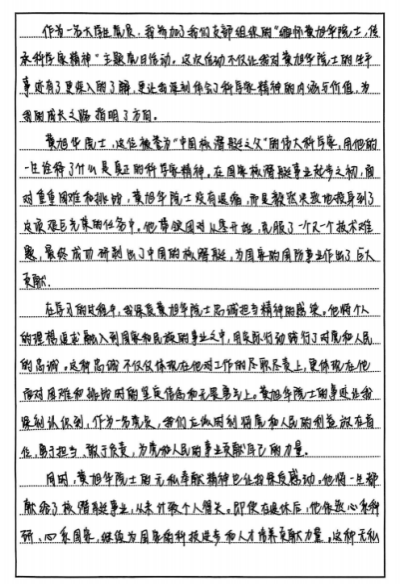 作为一名大学生党员，我参加了我们支部组织的“缅怀黄旭华院士，传
承科学家精神”主题党日活动。这次活动不仅让我对黄旭华院士的生平
事迹有了更深入的了解，更让我深刻体会了科学家精神的内涵与价值，为
我的成长之路指明了方向。
黄旭华院士，这位被誉为“中国核潜艇之父”的伟大科学家，用他的
一生诠释了什么是真正的科学家精神。在国家核潜艇事业起步之初，面
对重重困难和挑战，黄旭华院士没有退缩，而是毅然决然地投身到了
这项艰巨光荣的任务中。他带领团队从零开始，克服了一个又一个技术难
题，最终成功研制出了中国的核潜艇，为国家的国防事业作出了巨大
贡献。
在学习的过程中，我深受黄旭华院士忠诚担当精神的感染。他将个人
的理想追求融入到国家和民族的事业之中，用实际行动践行了对党和人民
的忠诚。这种忠诚不仅仅体现在他对工作的尽职尽责上，更体现在他
面对困难和挑战时的坚定信念和无畏勇气上。黄旭华院士的事迹让我
深刻认识到，作为一名党员，我们应当时刻将党和人民的利益放在首
位，勇于担当，敢于负责，为党和人民的事业贡献自己的力量。
同时，黄旭华院士的无私奉献精神也让我深受感动。他将一生都
献给了核潜艇事业，从未计较个人得失。即使在退休后，他依然心系科
研、心系国家，继续为国家的科技进步和人才培养贡献力量。这种无私